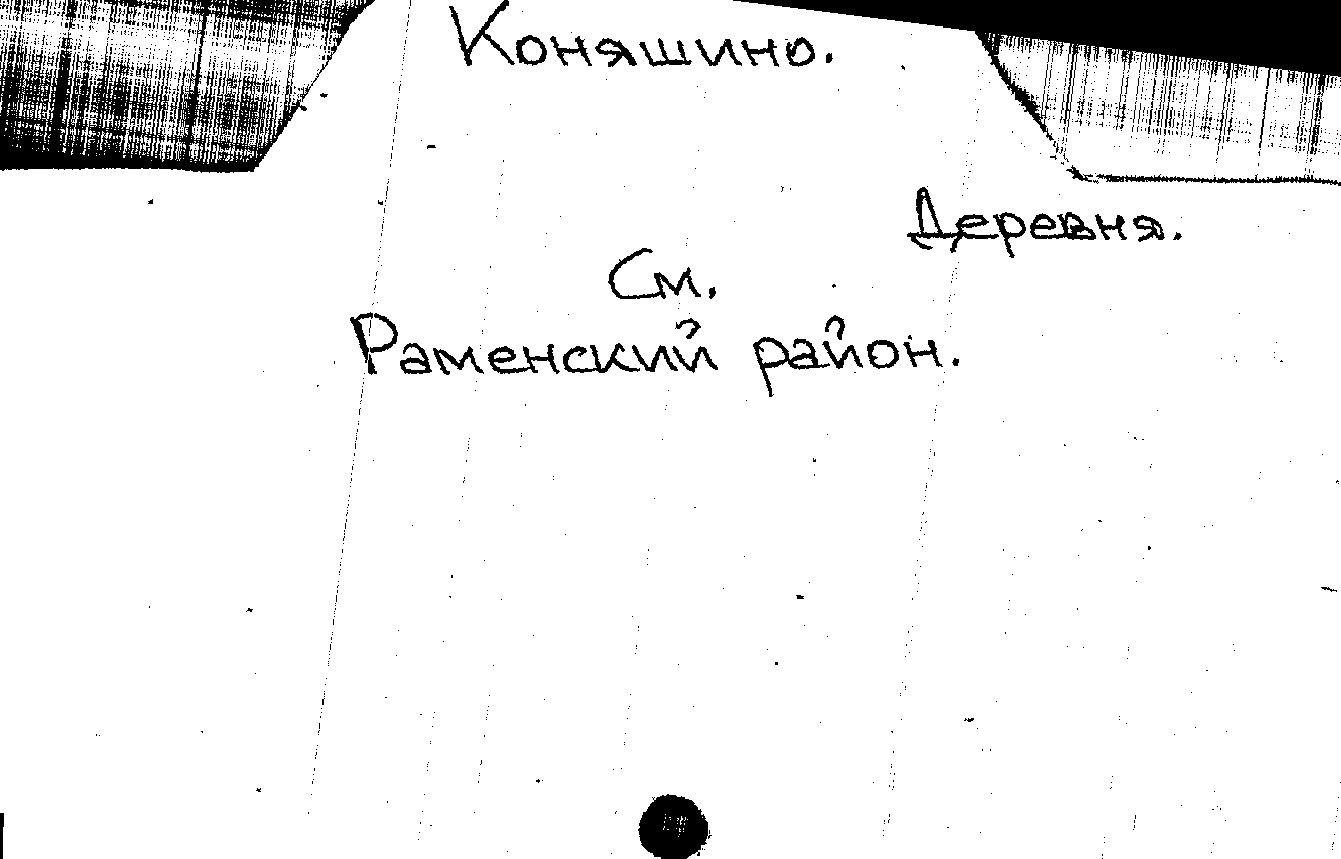 Коняшино.
Деревня.
См.
Раменский район.